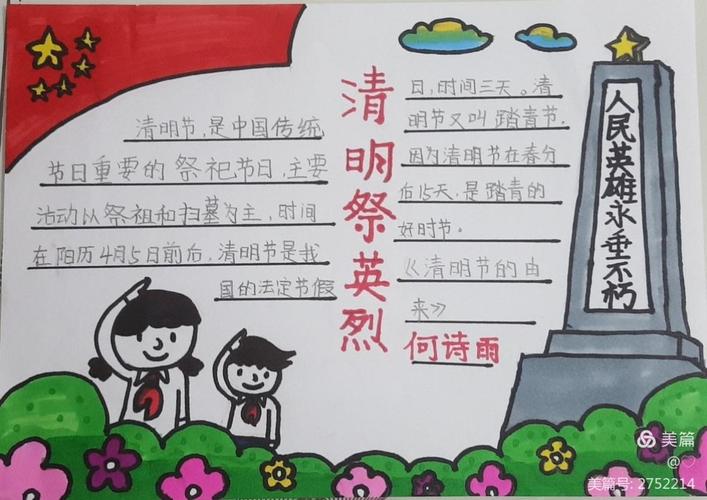 清明节,是中国传统
节日重要的祭祀节日,主要
活动以祭祖和扫墓为主,时间
在阳历4月5日前后,清明节是我
国的法定节假
清明祭英烈
日,时间三天。清
明节又叫踏青节,
因为清明节在春分
后15天,是踏青的
好时节。
《清明节的由
来》
何诗雨
人民英雄永垂不朽
美篇
@♡
美篇号: 2752214